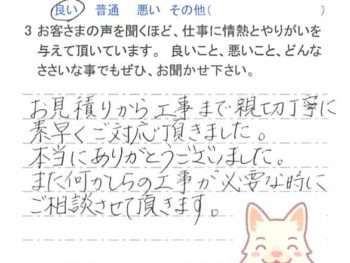 良い 普通 悪い その他( )
3 お客さまの声を聞くほど、仕事に情熱とやりがいを
与えて頂いています。 良いこと、悪いこと、どんな
ささいな事でもぜひ、お聞かせ下さい。
お見積りから工事まで親切丁寧に
素早くご対応頂きました。
本当にありがとうございました。
また何かしらの工事が必要な時に
ご相談させて頂きます。